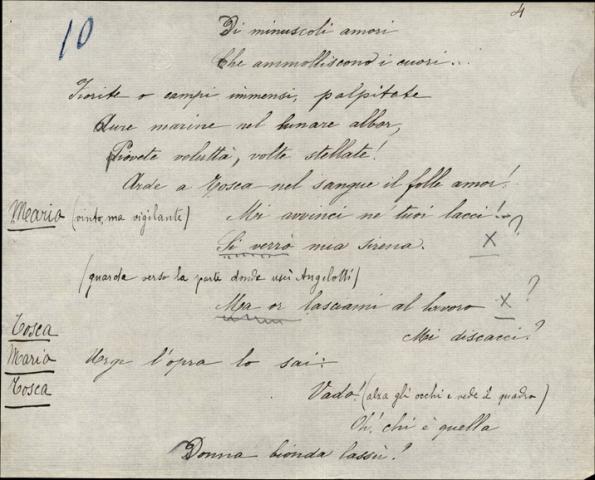 10
4
Di minuscoli amori
Che ammolliscono i cuori...
Fiorite o campi immensi, palpitate
Aure marine nel lunare albor,
Piovete voluttà, volte stellate!
Arde a Tosca nel sangue il folle amor!
Mario (vinto, ma vigilante) Mi avvinci ne' tuoi lacci!..
Si verrò mia sirena. X ?
(guarda verso la parte donde uscì Angelotti)
Ma or lasciami al lavoro X ?
Tosca Mi discacci?
Mario Urge l'opra lo sai:
Tosca Vado! (alza gli occhi e vede il quadro)
Oh! chi è quella
Donna bionda lassù?